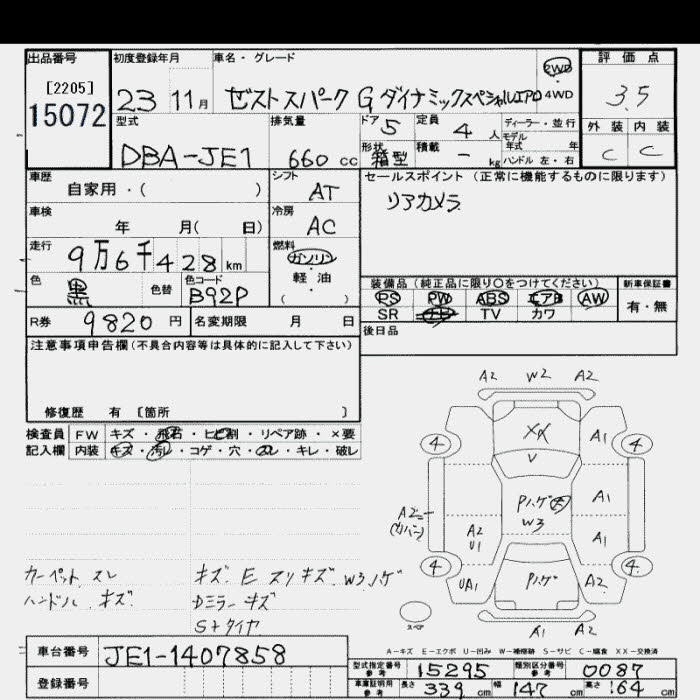 出品番号 初度登録年月 車名・グレード 評価点
[2205] 15072 23 11月 ゼストスパーク G ダイナミックスペシャルエアロ 2WD 4WD 3.5
型式 排気量 ドア 5 定員 4 人 ディーラー・並行 外装 内装
モデル年式 年
DBA-JE1 660 cc 形状 箱型 積載 - kg ハンドル 左・右 C C
車歴 シフト セールスポイント (正常に機能するものに限ります)
自家用・( ) AT リアカメラ
車検 冷房
年 月( 日) AC
走行 燃料
9万6千428km ガソリン
色 黒 色替 色コード B92P 軽油 ( )
装備品 (純正品に限り○をつけてください) 新車保証書
PS PW ABS エアB AW 有・無
SR TV カワ
R券 9820 円 名変期限 月 日 後日品
注意事項申告欄 (不具合内容等は具体的に記入して下さい)
修復歴 有 〔箇所 〕
検査員 FW キズ・飛石・ヒビ割・リペア跡・×要
記入欄 内装 キズ・汚レ・コゲ・穴・スレ・キレ・破レ
A2 W2 A2
4 XX A1 4
V
A2 (カバー) Pハゲ大 A1
W3
A2 U1 A1
4 UA1 Pハゲ A2 4
スペア A1 A2
カーペット スレ キズ. E スリキズ. W3ハゲ
ハンドル キズ Dミラーキズ
S+タイヤ
A-キズ E-エクボ U-凹み W-補修跡 S-サビ C-腐食 XX-交換済
車台番号 JE1-1407858
登録番号
型式指定番号 参考 15295 類別区分番号 参考 0087
車庫証明用 参考 長さ 339 cm 幅 147 cm 高さ 164 cm